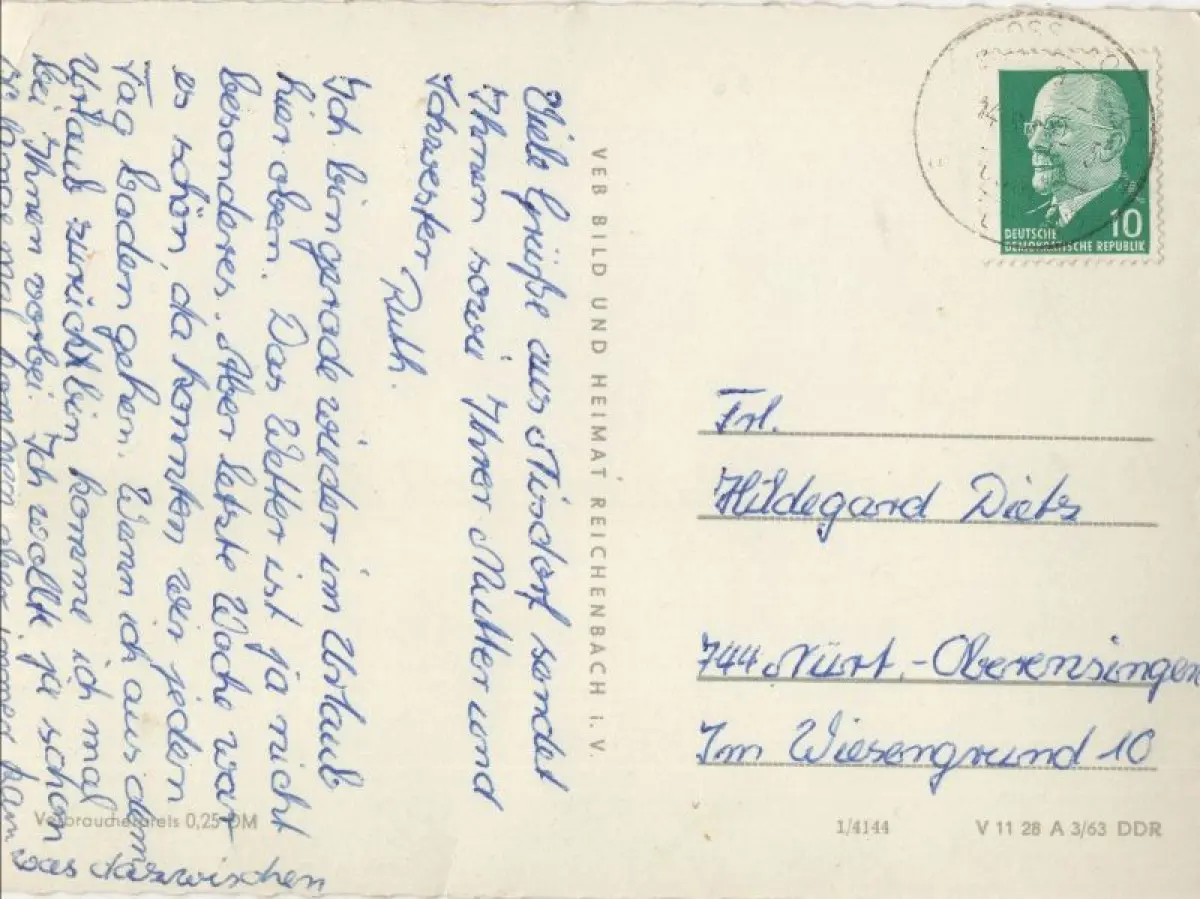 Viele Grüße aus Tisdorf sendet
Ihnen sowie Ihrer Mutter und
Schwester Ruth.
Ich bin gerade wieder im Urlaub
hier oben. Das Wetter ist ja nicht
besonderes. Aber letzte Woche war
es schön, da konnten wir jeden
Tag baden gehen. Wenn ich aus dem
Urlaub zurück bin komme ich mal
bei Ihnen vorbei. Ich wollte ja schon
mal kommen aber immer kam
was dazwischen
VEB BILD UND HEIMAT REICHENBACH i. V.
Verbraucherpreis 0,25 DM
DEUTSCHE
DEMOKRATISCHE REPUBLIK
10
Frl.
Hildegard Dietz
744 Nürt.-Oberensingen
Im Wiesengrund 10
1/4144
V 11 28 A 3/63 DDR